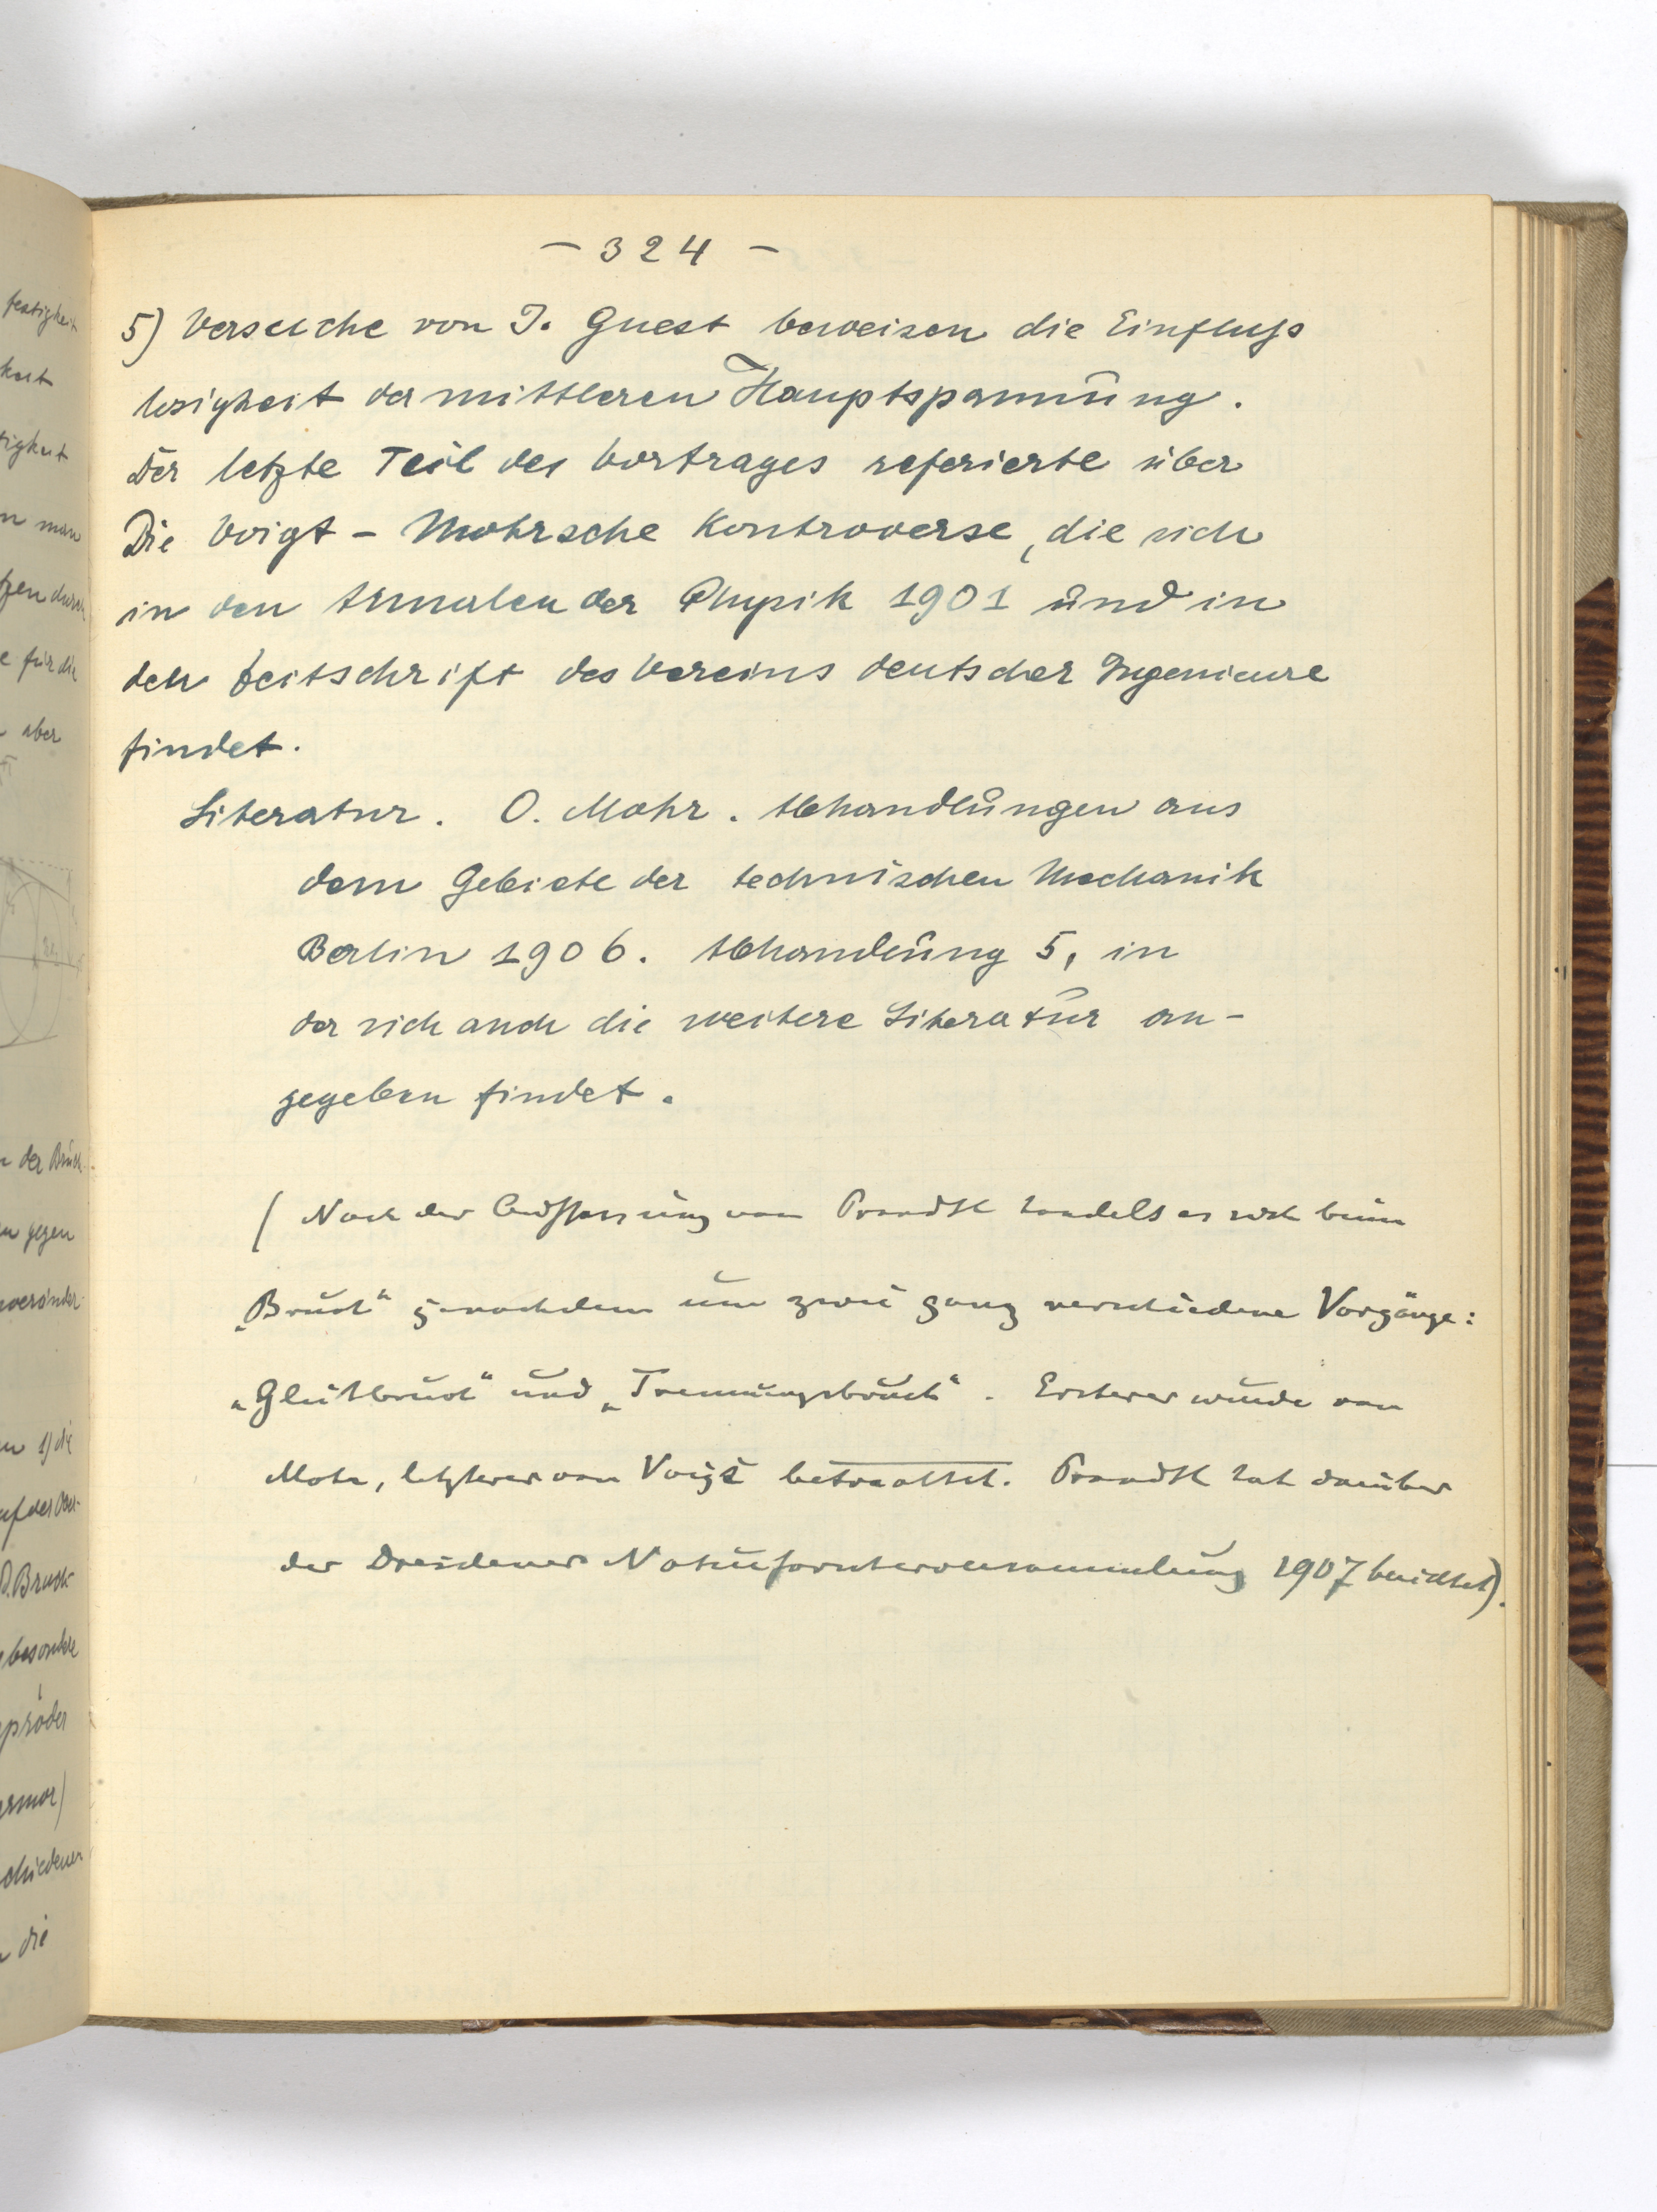 – 324 –
5) Versuche von J. Guest beweisen die Einfluss
losigkeit der mittleren Hauptspannung.
Der letzte Teil des Vortrages referierte über
Die Voigt – Mohrsche Kontroverse, die sich
in den Annalen der Physik 1901 und in
der Zeitschrift des Vereins deutscher Ingenieure
findet.
Literatur. O. Mohr. Abhandlungen aus
dem Gebiete der technischen Mechanik
Berlin 1906. Abhandlung 5, in
der sich auch die weitere Literatur an-
gegeben findet.
( Nach der Auffassung von Prandtl handelt es sich beim
„Bruch“ jenachdem um zwei ganz verschiedene Vorgänge:
„Gleitbruch“ und „Trennungsbruch“. Ersterer wurde von
Mohr, letzterer von Voigt betrachtet. Prandtl hat darüber
der Dresdener Naturforscherversammlung 1907 berichtet).
festigkeit
keit
tigkeit
n man
tzen durch
e für die
aber
n der Bruch-
n gegen
veränder-
n 1) die
auf der Ober-
D. Bruch
besondere
spröder
armor)
schiedener
die